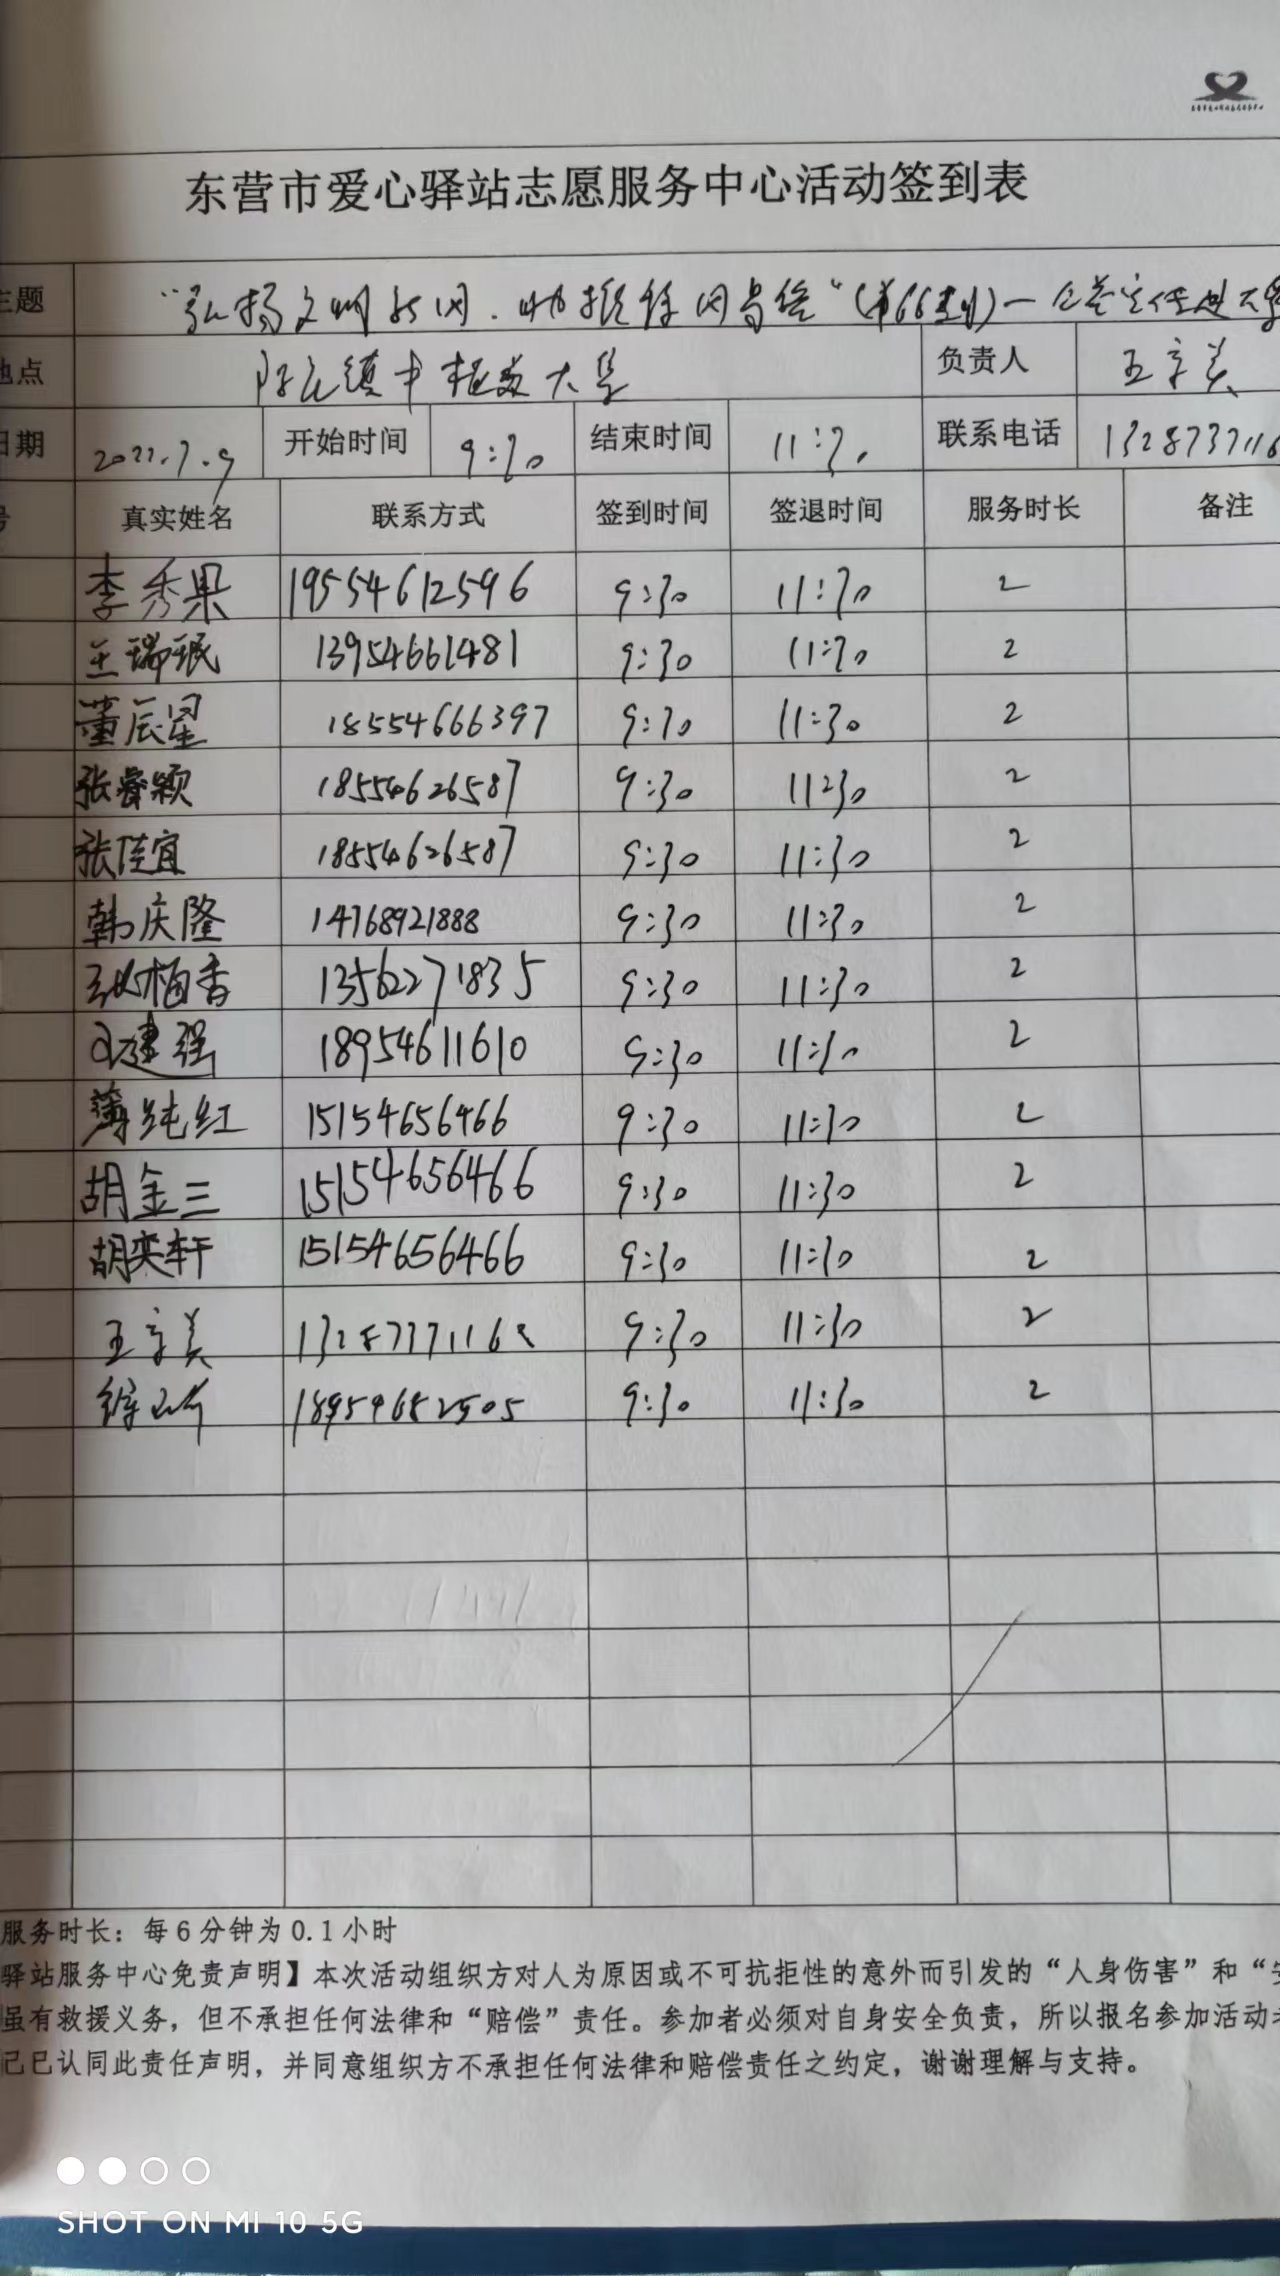 东营市爱心驿站志愿服务中心活动签到表
主题
地点 负责人 王京美
日期 开始时间 9:30 结束时间 11:30 联系电话
真实姓名 联系方式 签到时间 签退时间 服务时长 备注
李秀果 19554612596 9:30 11:30 2
王瑞珉 13954661481 9:30 11:30 2
董辰星 18554666397 9:30 11:30 2
张睿颖 18554626587 9:30 11:30 2
张佳宜 18554626587 9:30 11:30 2
韩庆隆 14768921888 9:30 11:30 2
张梅香 13562271835 9:30 11:30 2
建强 18954611610 9:30 11:30 2
薄纯红 15154656466 9:30 11:30 2
胡金三 15154656466 9:30 11:30 2
胡奕轩 15154656466 9:30 11:30 2
王京美 9:30 11:30 2
9:30 11:30 2
服务时长：每6分钟为0.1小时
驿站服务中心免责声明】本次活动组织方对人为原因或不可抗拒性的意外而引发的“人身伤害”和“
虽有救援义务，但不承担任何法律和“赔偿”责任。参加者必须对自身安全负责，所以报名参加活动
己已认同此责任声明，并同意组织方不承担任何法律和赔偿责任之约定，谢谢理解与支持。
SHOT ON MI 10 5G